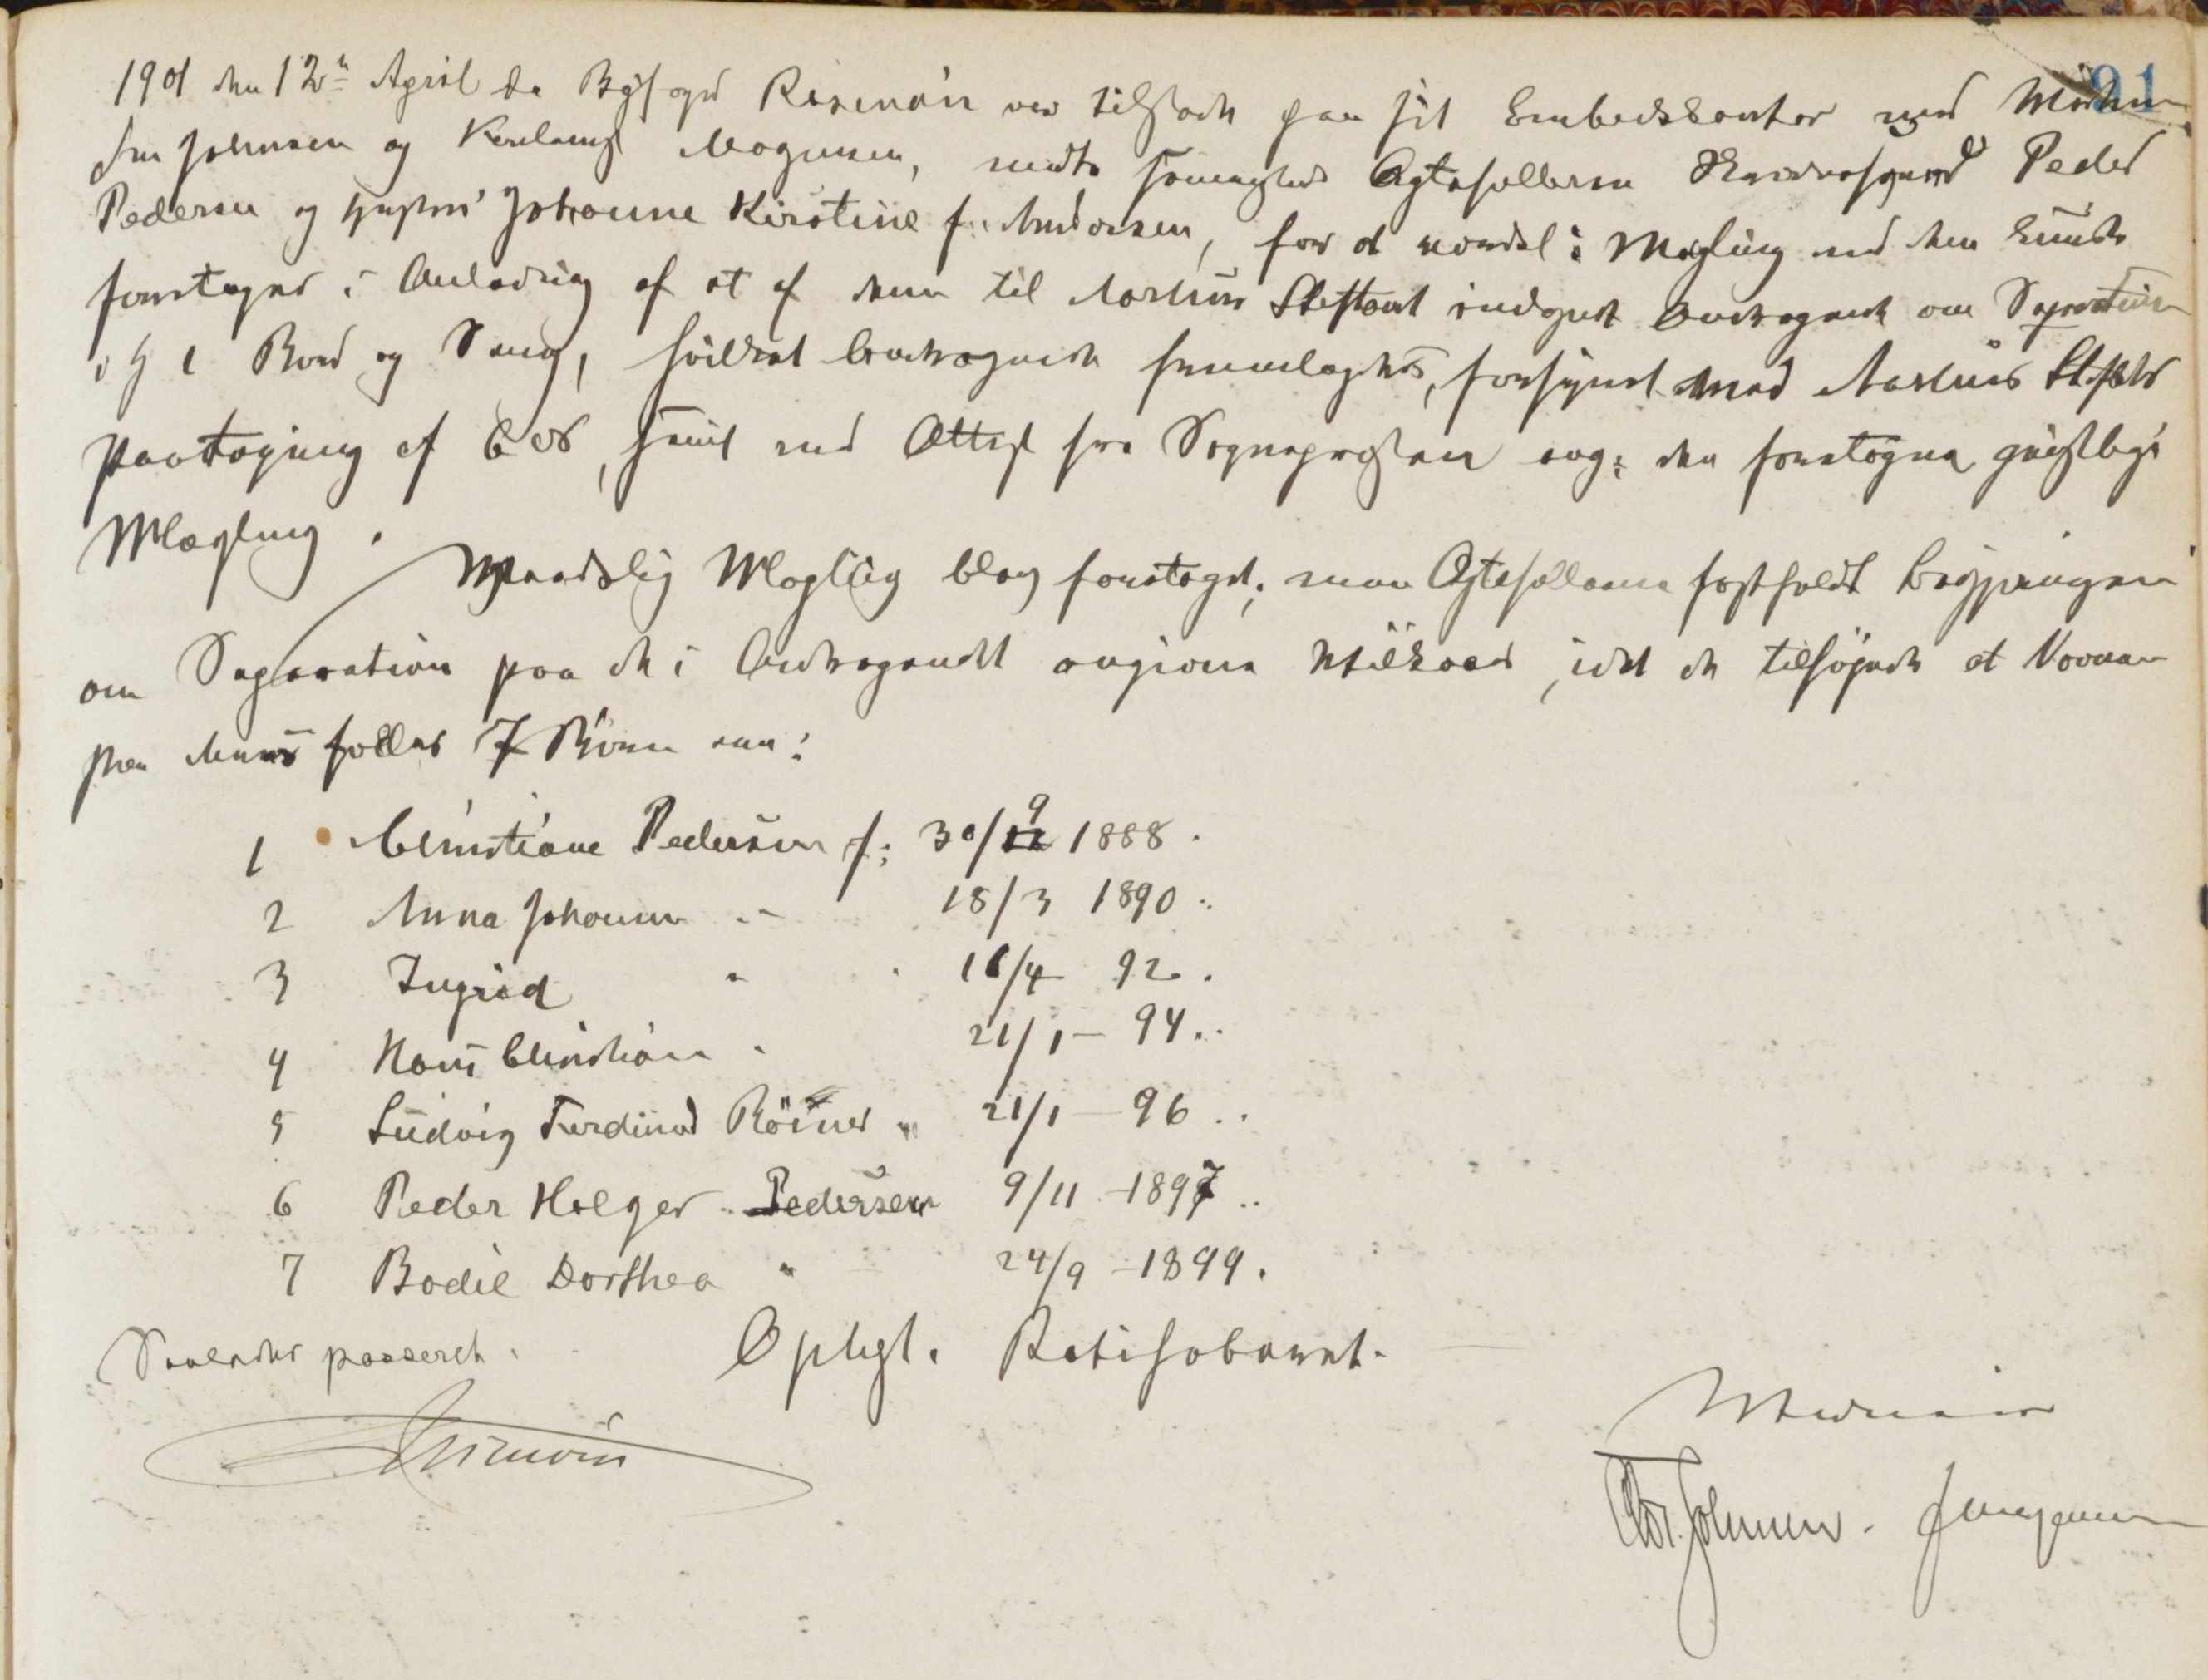 91
1901 den 12te April da Byfoged Riismann var tilstede paa sit Embedskontor med
Johnsen og Mogensen, mødte Ægtefællerne Peder
Pedersen og Hustru Johanne Kirstine f. Andersen, for at verdslig Mægling med dem kunde
foretages i Anledning af et af dem til Aarhus Stiftamt indgivet Andragende om Separation
Bord og Seng, hvilket Andragende fremlagdes, forsynet med Aarhus Stifts
Paategning af samt med Attest fra Sognepræsten ang: den foretagne geistlige
Mægling.
Verdslig Mægling blev foretaget; men Ægtefællerne fastholdt Begjæringen
om Separation paa de i Andragendet angivne Vilkaar, idet de tilføjede at Navnene
paa deres fælles 7 Børn ere:
1 Christiane Pedersen f: 30/9 1888.
2 Anna Johanne " 18/3 1890
3 Ingrid " 16/4 92.
4 Hans Christian " 21/1 - 94.
5 Ludvig Ferdinand Reiner " 21/1 - 96
6 Peder Holger Pedersen 9/11 - 1897
7 Bodil Dorthea " 24/9 - 1899.
Saaledes passeret. Oplæst. Ratihaberet.
Chr. Johnsen. J Mogensen